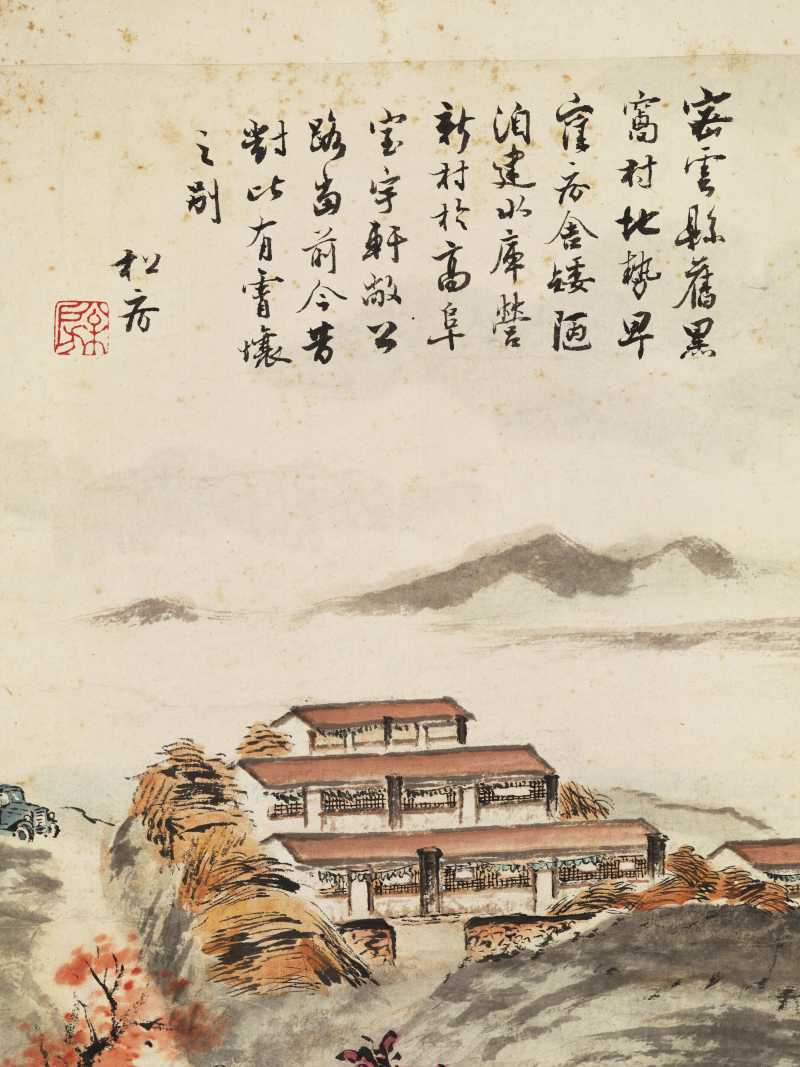 密雲縣舊黑
窩村地勢卑
窪房舍矮陋
洎建水庫營
新村於高阜
室宇軒敞公
路當前今昔
對比有霄壤
之別
松房